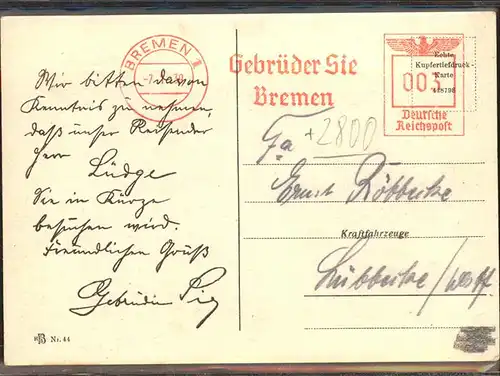 BREMEN 1
Gebrüder Sie
Bremen
Echte
Kupfertiefdruck-
Karte
Deutsche
Reichspost
Wir bitten davon
Kenntnis zu nehmen,
daß unser Reisender
Herr Lüdge
Sie in Kürze
besuchen wird.
Freundlichen Gruß
Gebrüder Sie
Fa
+2800
Ernst
Kraftfahrzeuge
Lübbecke/Westf
Nr. 44